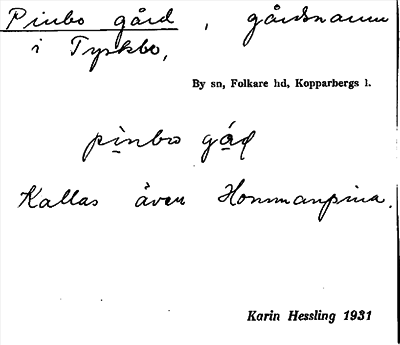 Pinbo gård, gårdsnamn
i Tyskbo,
By sn, Folkare hd, Kopparbergs l.
pi̠nbo gá̠ḍ
Kallas även Hommanpina.
Karin Hessling 1931